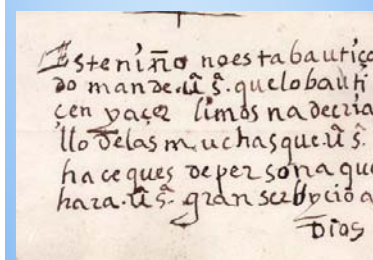 Este niño no esta bautiça
do mande. ũ s̃. que lo bauti
çen y açer limosna de cria
llo de las muchas que. ũ s̃.
hace ques de persona que
hara. ũ s̃. gran serbycio a
Dios